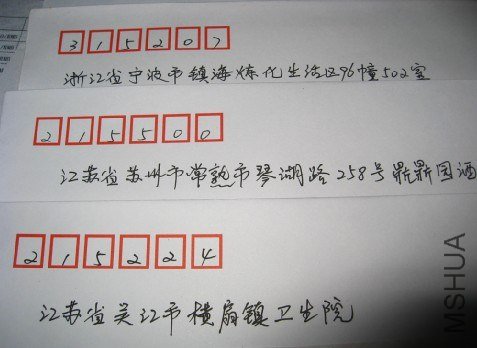 315207
浙江省宁波市镇海炼化生活区96幢502室
215500
江苏省苏州市常熟市琴湖路258号鼎鼎园酒
215224
江苏省吴江市横扇镇卫生院
MSHUA